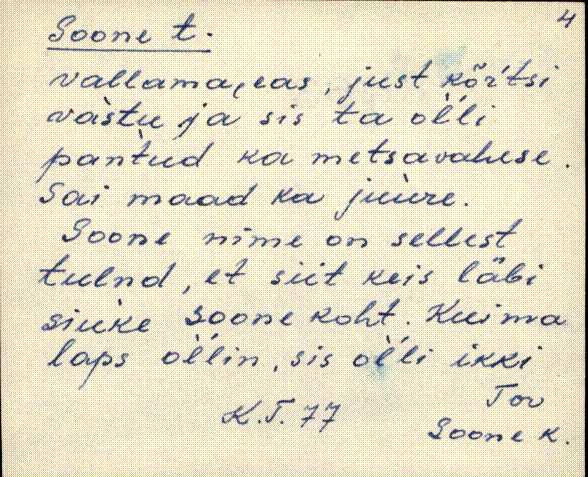 4
Soone t.
vallamaeas, just kõŕtsi
vàstu ja sis ta òlli
pantud ka metsavahese.
Sai maad ka juùre.
Soone nime on sellest
tulnd, et siit keis läbi
siuke soone koht. Kui ma
laps òllin, sis òlli ikki
K.T. 77
Tov
Soone k.